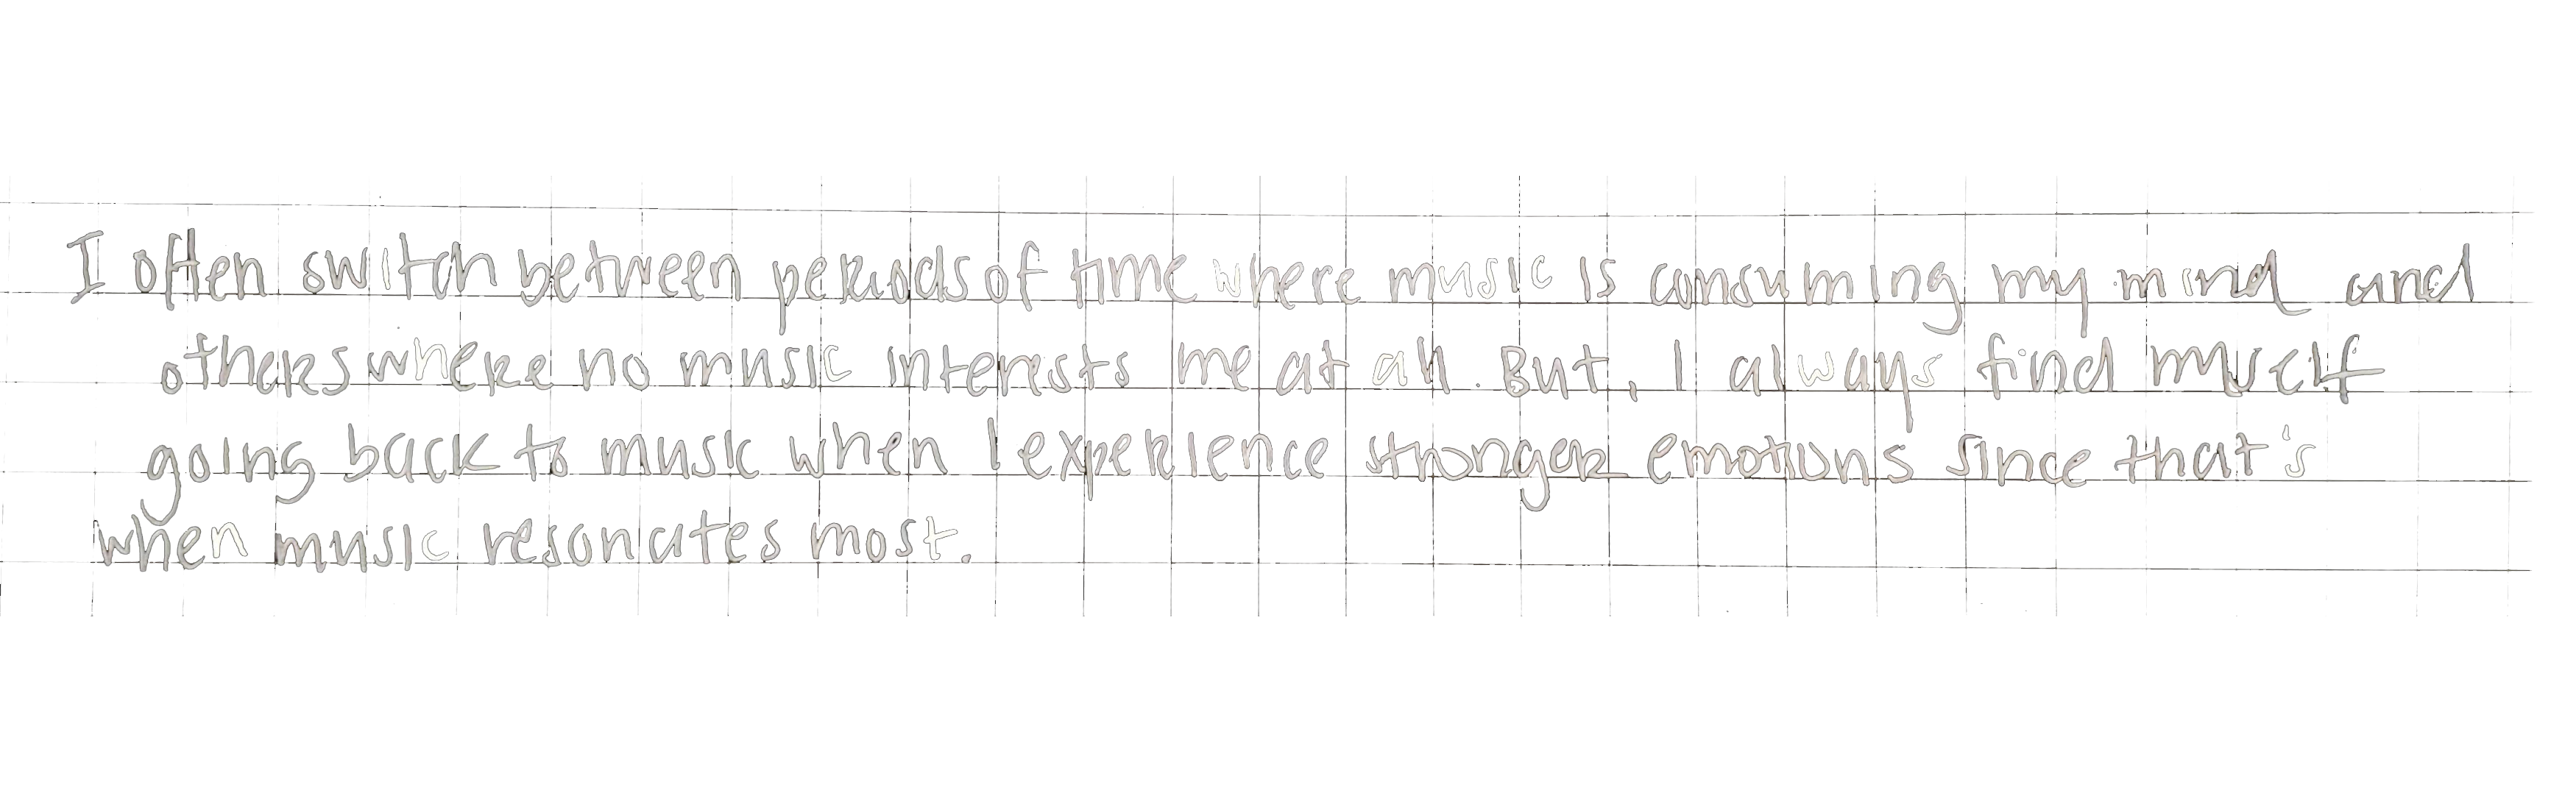 I often switch between periods of time where music is consuming my mind and
others where no music interests me at all. But, I always find myself
going back to music when I experience stronger emotions since that's
when music resonates most.